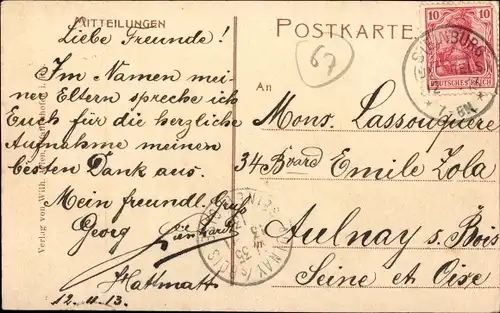 MITTEILUNGEN
Liebe Freunde!
Im Namen mei-
ner Eltern spreche ich
Euch für die herzliche
Aufnahme meinen
besten Dank aus.
Mein freundl. Gruß
Georg Lienhardt
Hattmatt
12.11.13.
Verlag von Wilh.
POSTKARTE
67
10 10
DEUTSCHES REICH
STEINBURG
An
Mons. Lassouquère
34 Bvard Emile Zola
Aulnay s. Bois
Seine et Oise
AULNAY